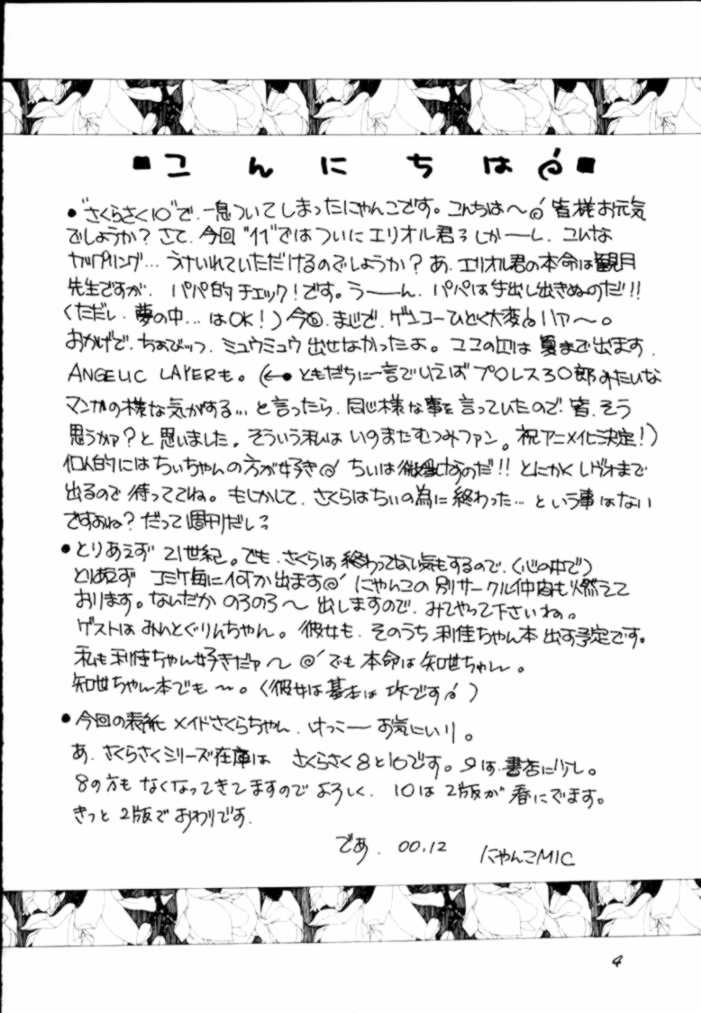 ■こんにちは■
●"さくらさく10"で、一息ついてしまったにゃんこです。こんちは〜 皆様お元気
でしょうか？さて、今回"11"ではついにエリオル君 しかーし、こんな
カップリング…うけいれていただけるのでしょうか？あ、エリオル君の本命は観月
先生ですが、パパ的チェック！です。うーーん、パパは手出し出きぬのだ!!
(ただし、夢の中…はOK！)今回、まじで、ゲンコーひどく大変 ハァ〜。
おかげで、ちぁびッつ、ミュウミュウ出せなかったよ。ココの は夏まで出ます、
ANGELIC LAYERも。(←●ともだちに一言でいえばプロレス3○郎みたいな
マンガの様な気がする…と言ったら、同じ様な事を言っていたので、皆、そう
思うかァ？と思いました。そういう私はいのまたむつみファン。祝アニメ化決定！)
個人的にはちぃちゃんの方が好き ちぃは なのだ!!とにかく まで
出るので待っててね。もしかして、さくらはちぃの為に終わった…という事はない
ですよね？だって週刊だし？
●とりあえず21世紀。でも、さくらは終わってない気もするので、(心の中で)
とりあえずコミケ毎に何か出ます にゃんこの別サークル仲間も燃えて
おります。なんだかのろのろ〜出しますので、みてやって下さいね。
ゲストはみんとぐりんちゃん。彼女も、そのうち利佳ちゃん本出す予定です。
私も利佳ちゃん好きだァ〜 でも本命は知世ちゃん。
知世ちゃん本でも〜。(彼女は基本は攻です )
●今回の表紙メイドさくらちゃん、けっこーお気にいり。
あ、さくらさくシリーズ在庫はさくらさく8と10です。9は書店に少し。
8の方もなくなってきてますのでよろしく、10は2版が春にでます。
きっと2版でおわりです、
であ、00.12 にゃんこMIC
4